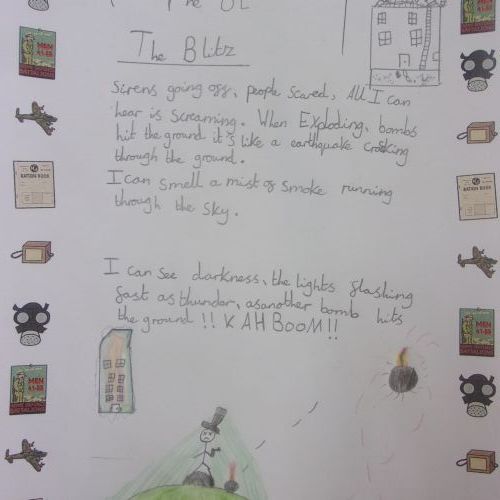 The Blitz
Sirens going off, people scared, All I can
hear is screaming. When Exploding, bombs
hit the ground it's like a earthquake
through the ground.
I can smell a mist of smoke running
through the sky.
I can see darkness, the lights flashing
fast as thunder, as another bomb hits
the ground !! KAHBOOM!!
MEN
41-55
RATION BOOK
MEN
41-55
MEN
41-55
RATION BOOK
MEN
41-55